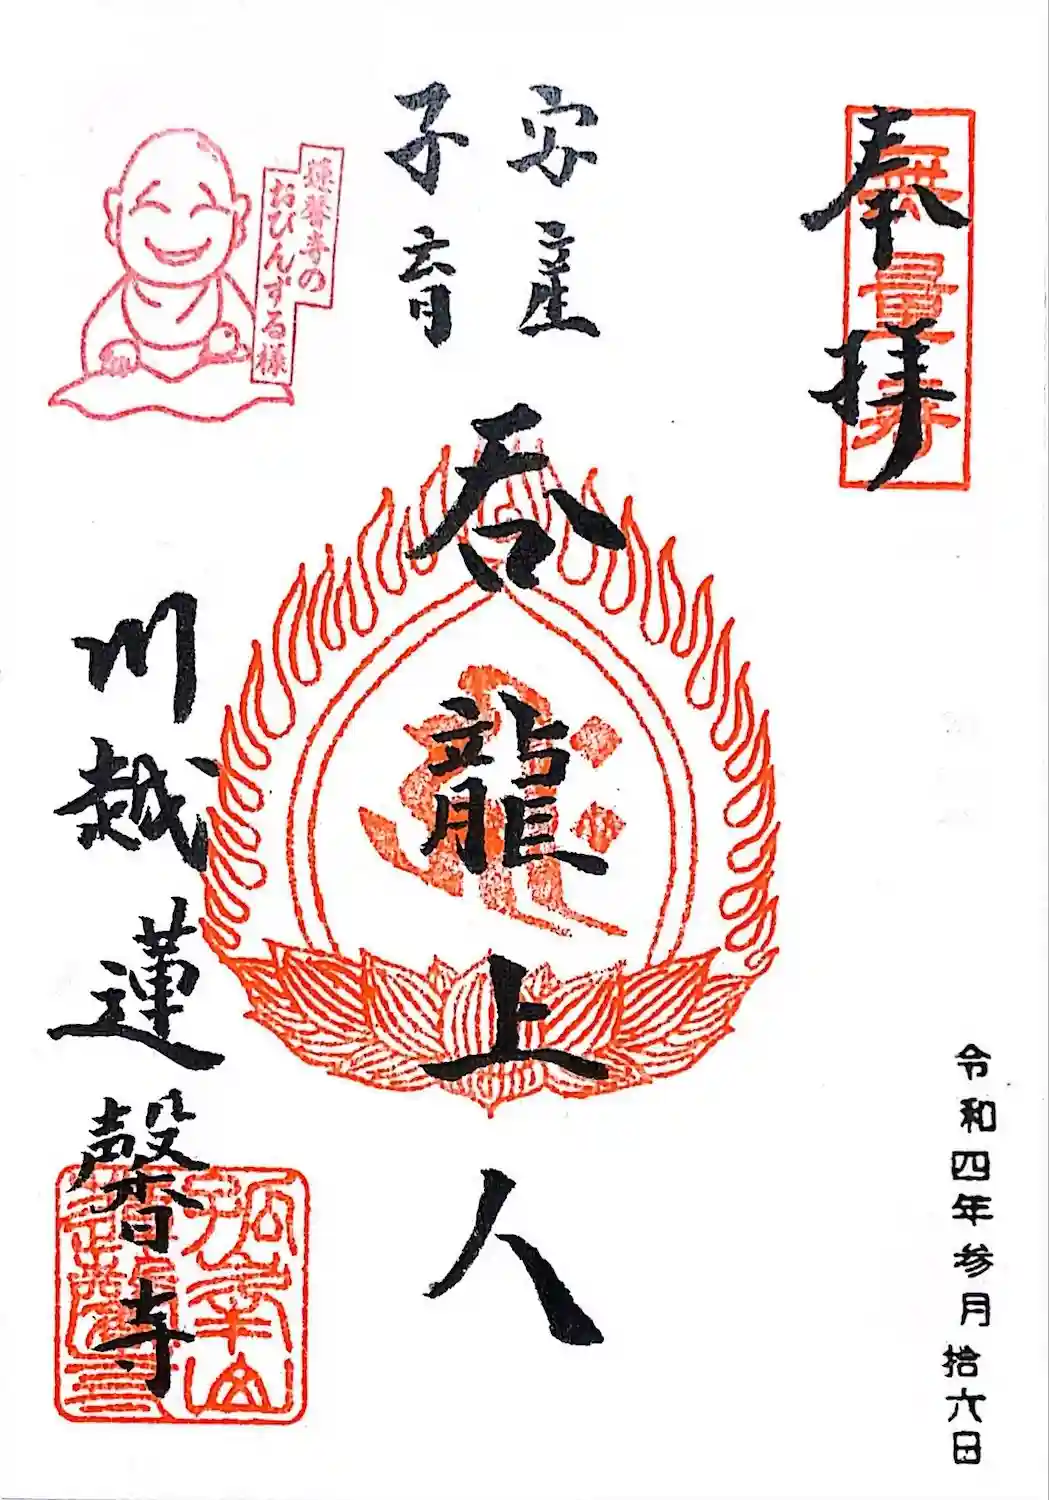 奉拝
無量寿
令和四年参月拾六日
安産
子育
呑龍上人
蓮馨寺の
おびんずる様
川越蓮馨寺
孤峯山